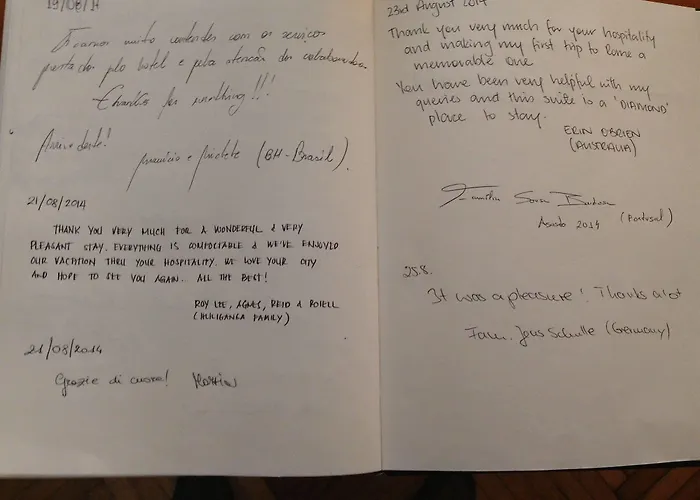 19/08/14
Ficamos muito contentes com os serviços
prestados pelo hotel e pela atenção dos colaboradores.
for everything!!!
Arrivederte!
e (BH-Brasil).
21/08/2014
THANK YOU VERY MUCH FOR A WONDERFUL & VERY
PLEASANT STAY. EVERYTHING IS COMFOCTABLE & WE'VE ENJOYED
OUR VACATION THRU YOUR HOSPITALITY. WE LOVE YOUR CITY
AND HOPE TO SEE YOU AGAIN.. ALL THE BEST!
ROY LEE, AGNES, REID &
(HULIGANGA FAMILY)
21/08/2014
Grazie di cuore!
23rd August 2014
Thank you very much for your hospitality
and making my first trip to Rome a
memorable one
You have been very helpful with my
queries and this suite is a 'DIAMOND'
place to stay.
ERIN OBRIEN
(AUSTRALIA)
Agosto 2014 (Portugal)
25.8.
It was a pleasure! Thanks a lot
Fam. Jens Schulle (Germany)